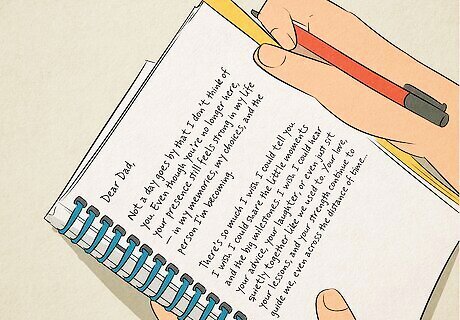 Dear Dad,
Not a day goes by that I don't think of
you. Even though you're no longer here,
your presence still feels strong in my life
— in my memories, my choices, and the
person I'm becoming.
There's so much I wish I could tell you
I wish I could share the little moments
and the big milestones. I wish I could hear
your advice, your laughter, or even just sit
quietly together like we used to. Your love,
your lessons, and your strength continue to
guide me, even across the distance of time...